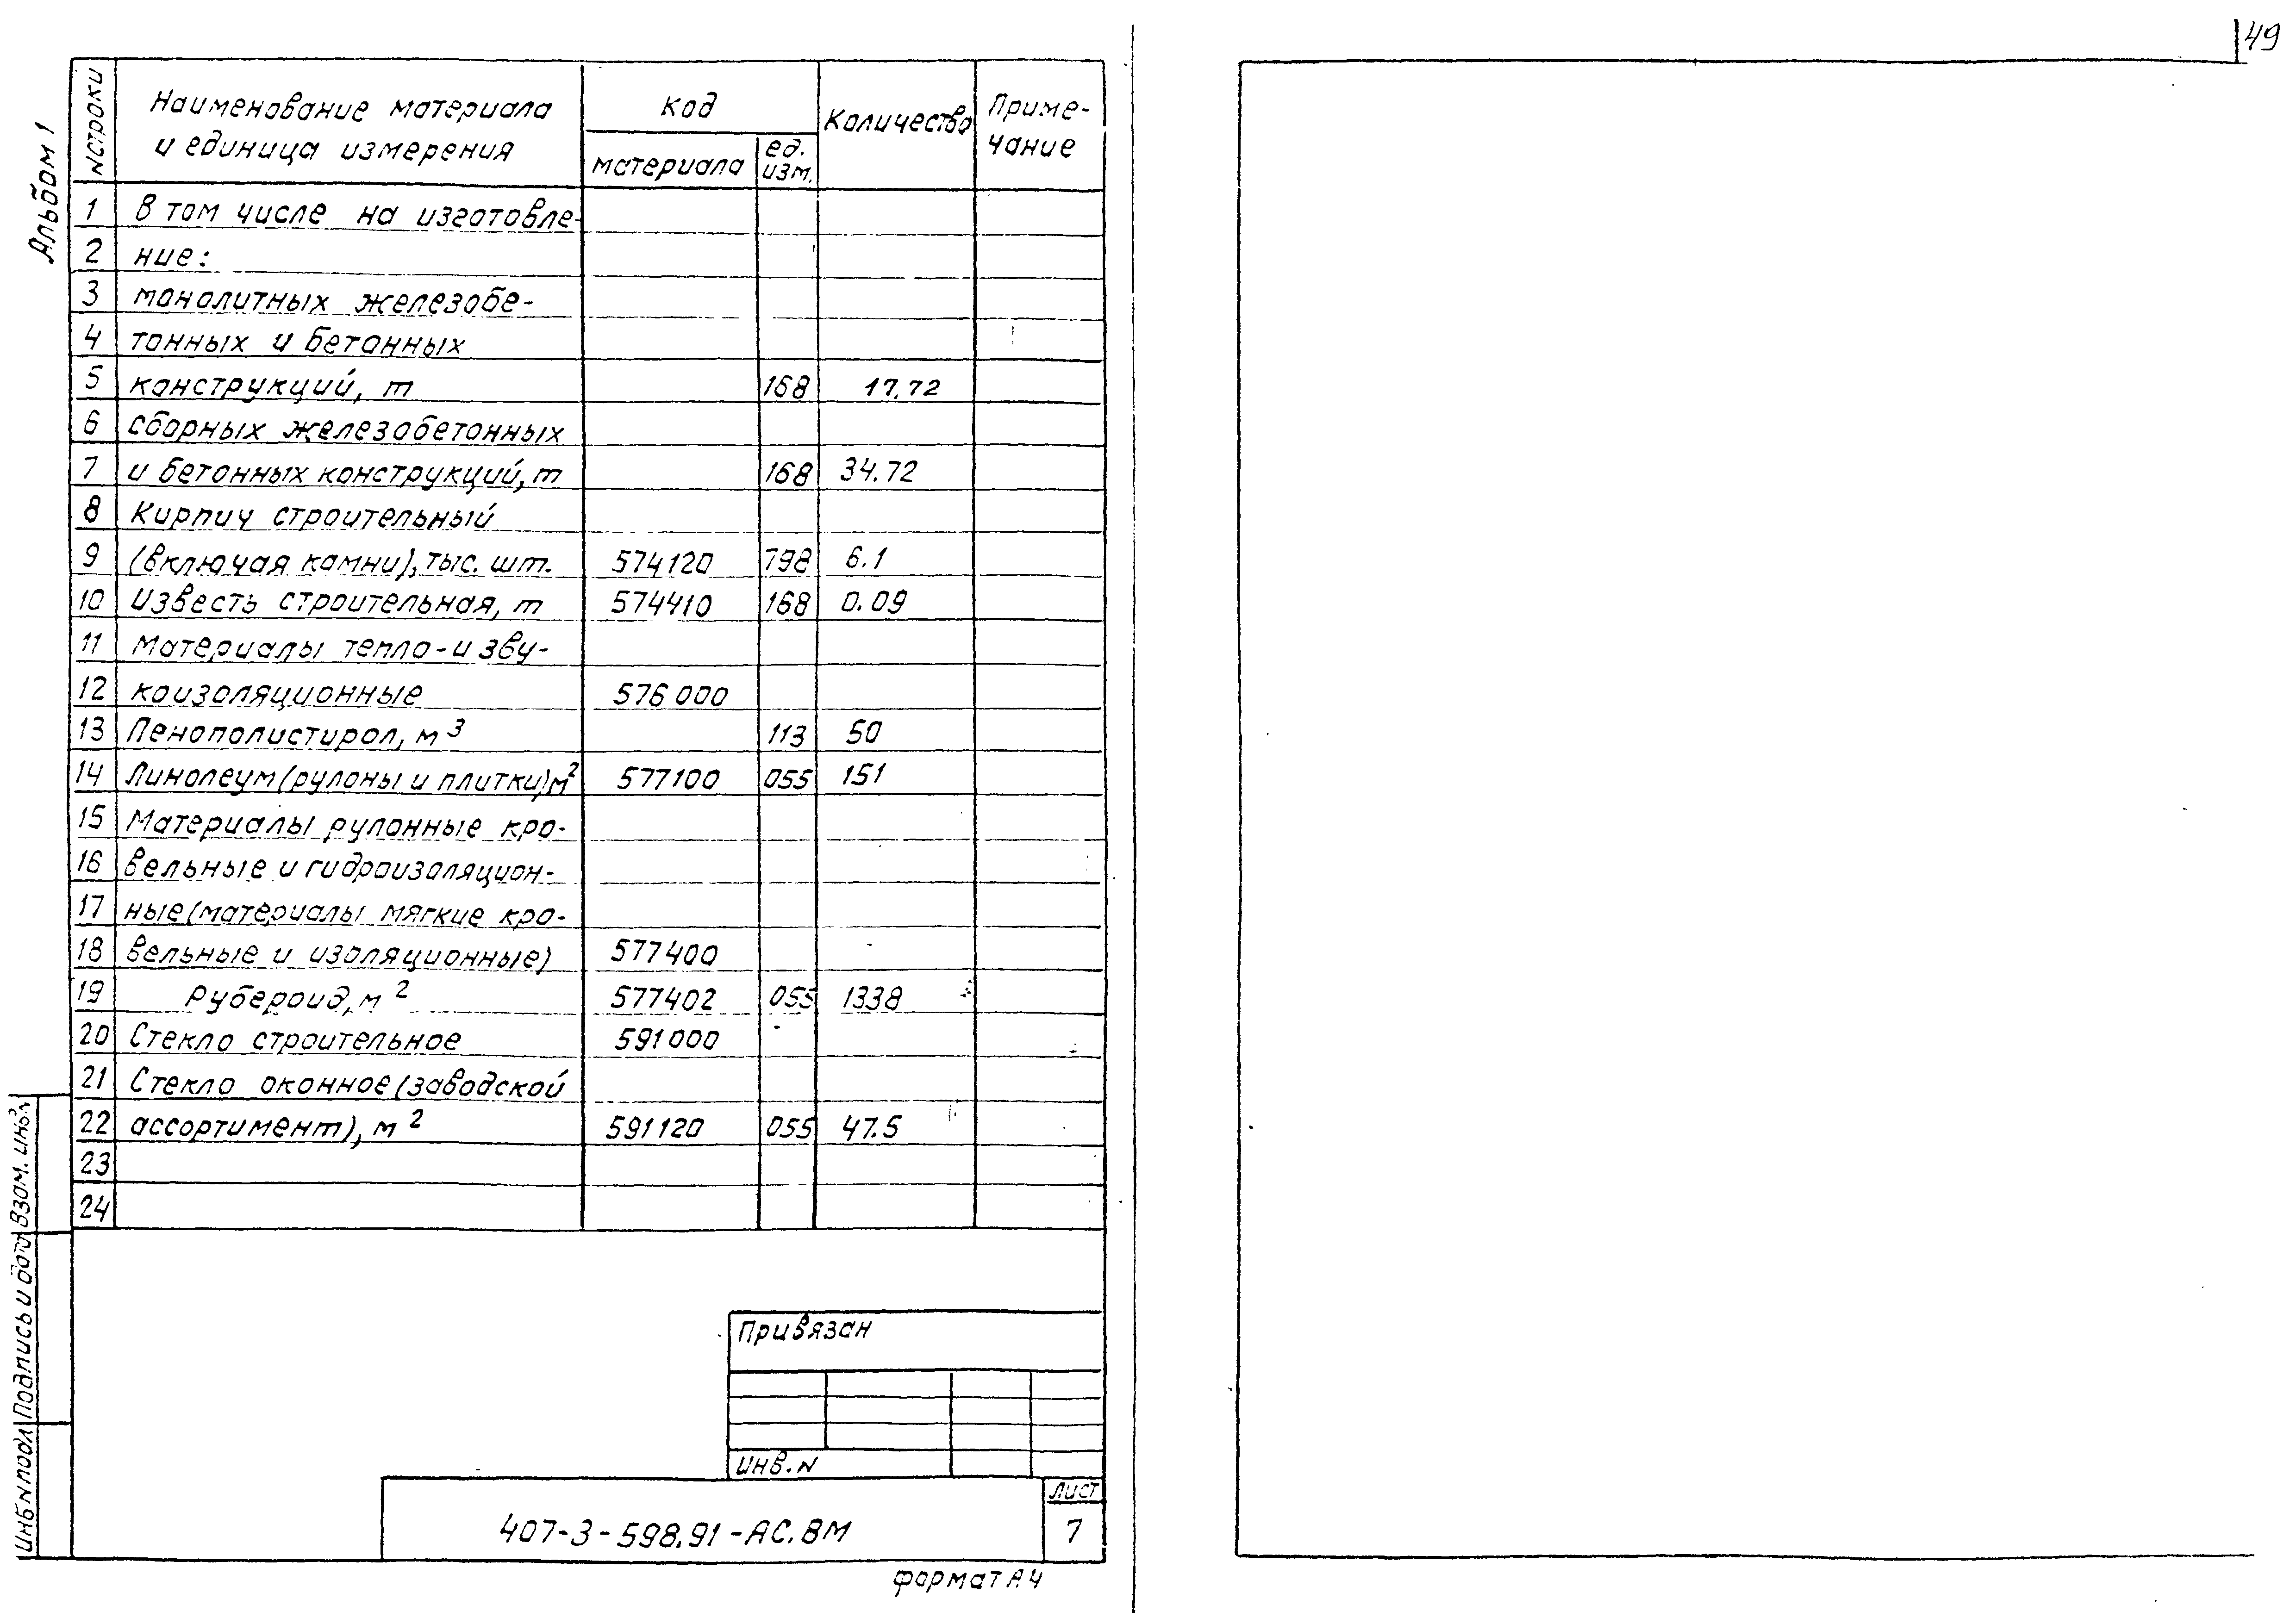 49
Альбом 1
N строки
Наименование материала
и единица измерения
Код
материала
ед.
изм.
Количество
Приме-
чание
1 В том числе на изготовле-
2 ние:
3 монолитных железобе-
4 тонных и бетонных
5 конструкций, т 168 17.72
6 сборных железобетонных
7 и бетонных конструкций, т 168 34.72
8 Кирпич строительный
9 (включая камни), тыс. шт. 574120 798 6.1
10 Известь строительная, т 574410 168 0.09
11 Материалы тепло-и зву-
12 коизоляционные 576000
13 Пенополистирол, м3 113 50
14 Линолеум (рулоны и плитки) м2 577100 055 151
15 Материалы рулонные кро-
16 вельные и гидроизоляцион-
17 ные (материалы мягкие кро-
18 вельные и изоляционные) 577400
19 Рубероид, м2 577402 055 1338
20 Стекло строительное 591000
21 Стекло оконное (заводской
22 ассортимент), м2 591120 055 47.5
23
24
Взам. инв. N
Подпись и дата
Инв N подл
Привязан
Инв. N
407-3-598.91-АС.ВМ
Лист
7
формат А4